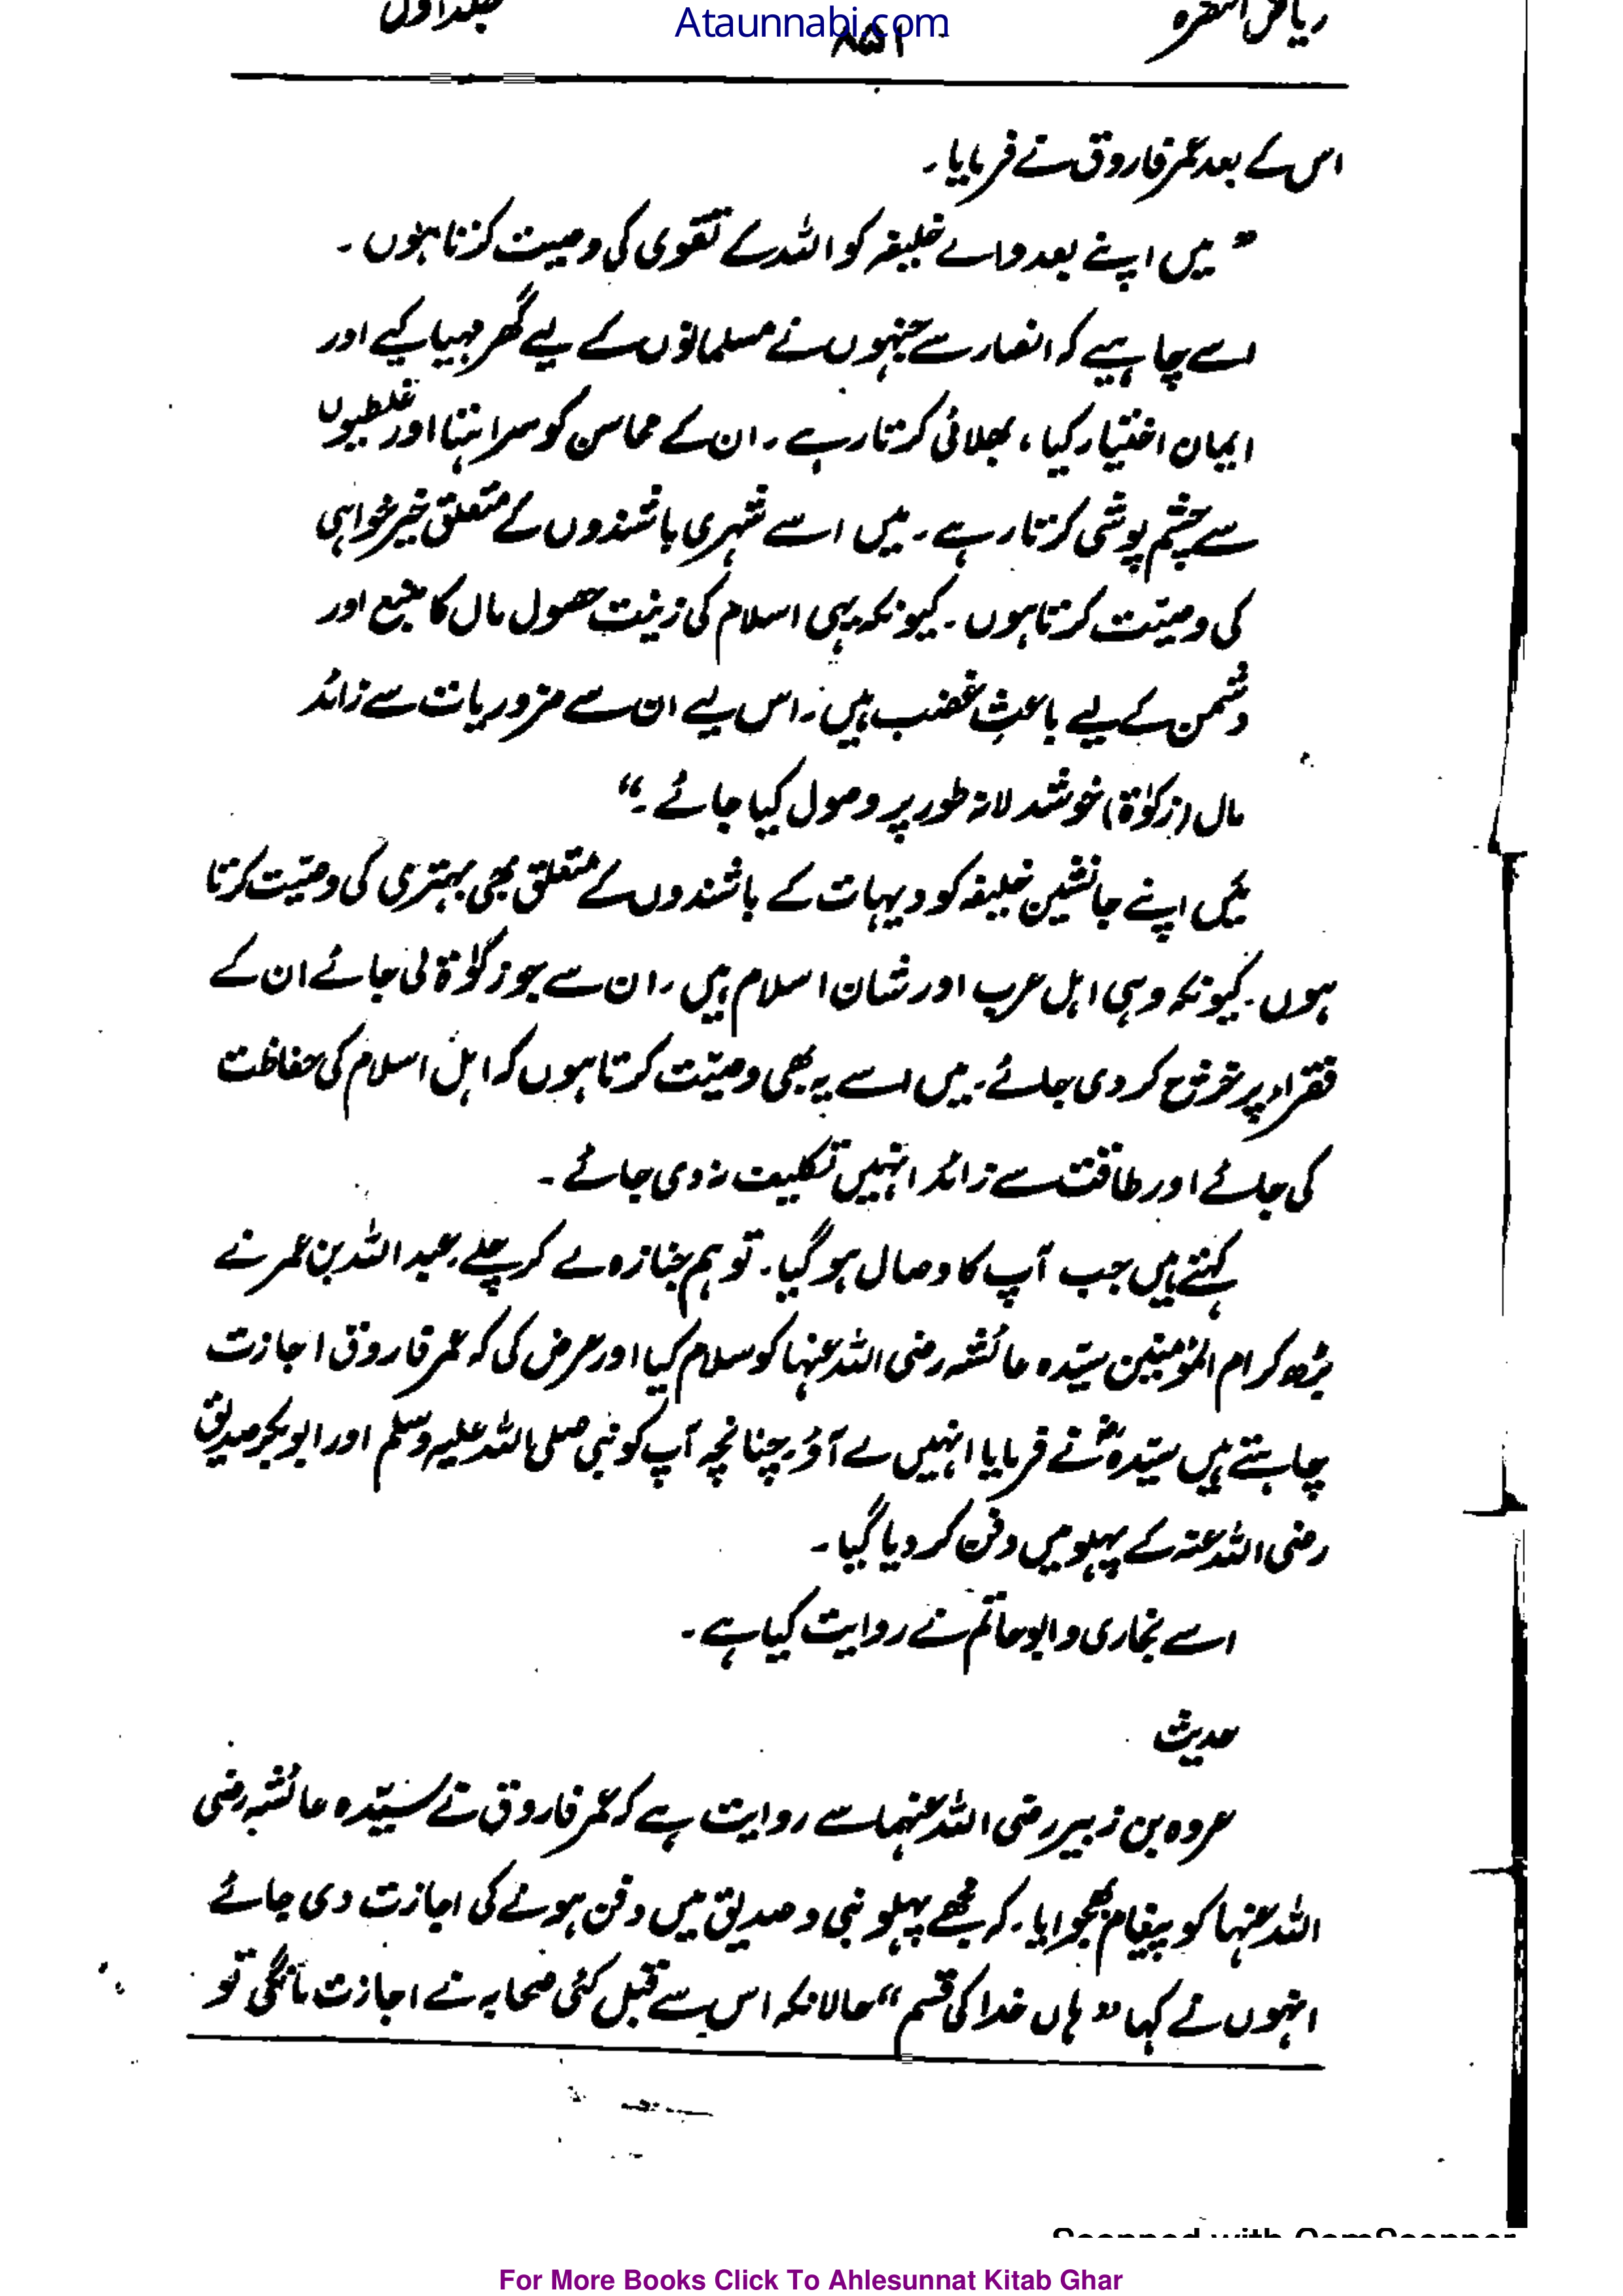 ریاض النضرہ
Ataunnabi.com
جلد اول
۸۵۱
اس کے بعد عمر فاروق نے فرمایا۔
"میں اپنے بعد والے خلیفہ کو اللہ کے تقوی کی وصیت کرتا ہوں۔
اسے چاہیے کہ انصار سے جنہوں نے مسلمانوں کے لیے گھر مہیا کیے اور
ایمان اختیار کیا، بھلائی کرتا رہے۔ ان کے محاسن کو سراہتا اور غلطیوں
سے چشم پوشی کرتا رہے۔ میں اسے شہری باشندوں کے متعلق خیر خواہی
کی وصیّت کرتا ہوں۔ کیونکہ یہی اسلام کی زینت حصول مال کا منبع اور
دشمن کے لیے باعثِ غضب ہیں۔ اس لیے ان سے ضروریات سے زائد
مال (زکوٰۃ) خوشدلانہ طور پر وصول کیا جائے۔"
میں اپنے جانشین خلیفہ کو دیہات کے باشندوں کے متعلق بھی بہتری کی وصیّت کرتا
ہوں۔ کیونکہ وہی اہل عرب اور شان اسلام ہیں۔ ان سے جو زکوٰۃ لی جائے ان کے
فقراء پر خرچ کر دی جائے۔ میں اسے یہ بھی وصیّت کرتا ہوں کہ اہل اسلام کی حفاظت
کی جائے اور طاقت سے زائد انہیں تکلیف نہ دی جائے۔
کہتے ہیں جب آپ کا وصال ہو گیا۔ تو ہم جنازہ لے کر چلے۔ عبد اللہ بن عمر نے
بڑھ کر ام المؤمنین سیّدہ عائشہ رضی اللہ عنہا کو سلام کیا اور عرض کی کہ عمر فاروق اجازت
چاہتے ہیں سیّدہؓ نے فرمایا انہیں لے آؤ۔ چنانچہ آپ کو نبی صلی اللہ علیہ وسلم اور ابوبکر صدیق
رضی اللہ عنہ کے پہلو میں دفن کر دیا گیا۔
اسے بخاری و ابو حاتم نے روایت کیا ہے۔
حدیث
عروہ بن زبیر رضی اللہ عنہما سے روایت ہے کہ عمر فاروق نے سیّدہ عائشہ رضی
اللہ عنہا کو پیغام بھجوایا۔ کہ مجھے پہلو نبی و صدیق میں دفن ہونے کی اجازت دی جائے
انہوں نے کہا "ہاں خدا کی قسم" حالانکہ اس سے قبل کئی صحابہ نے اجازت مانگی تو
Scanned with CamScanner
For More Books Click To Ahlesunnat Kitab Ghar